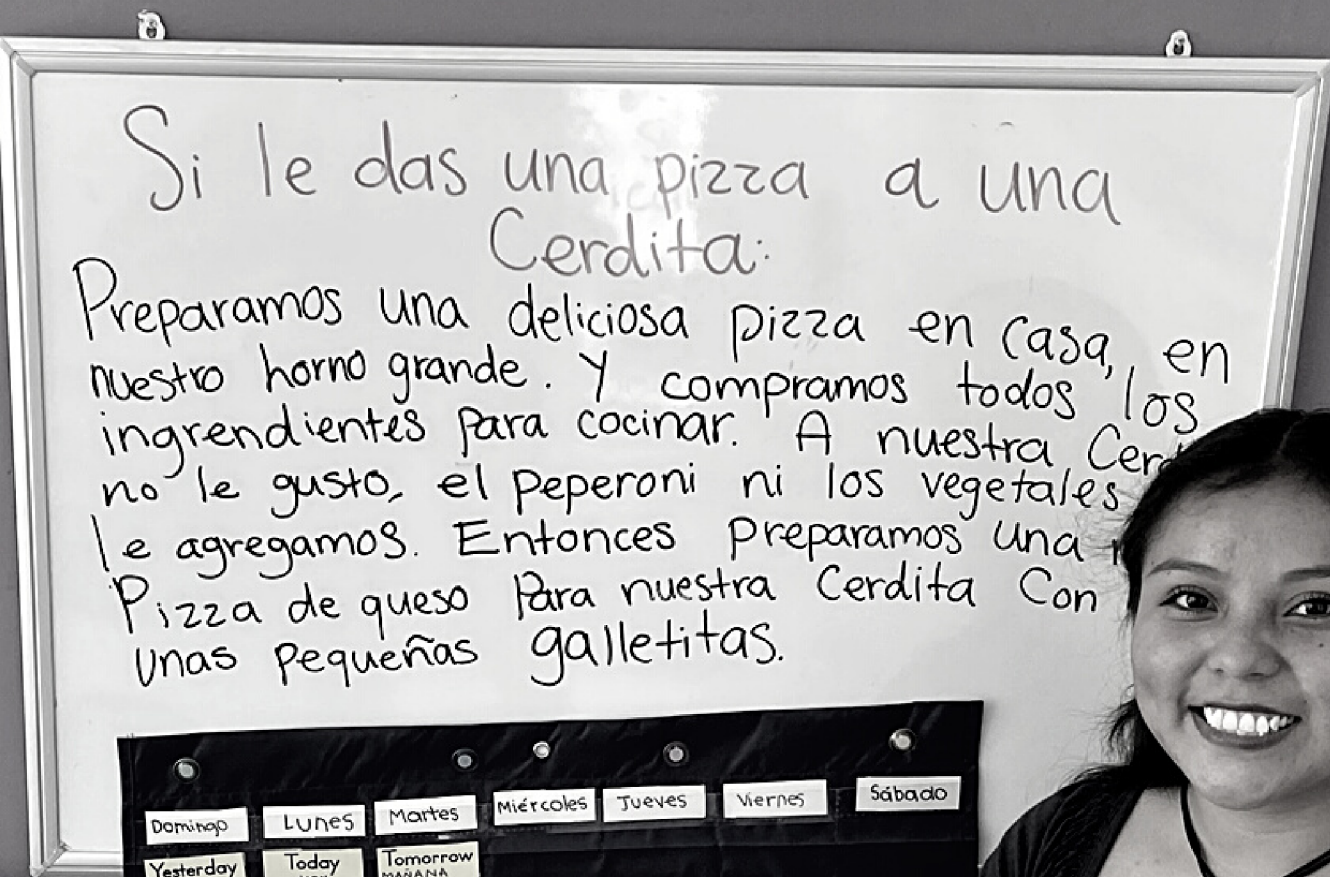 Si le das una pizza a una
Cerdita:
Preparamos una deliciosa pizza en casa, en
nuestro horno grande. Y compramos todos los
ingrendientes para cocinar. A nuestra
no le gusto, el peperoni ni los vegetales
le agregamos. Entonces preparamos una
Pizza de queso Para nuestra Cerdita Con
unas pequeñas galletitas.
Domingo Lunes Martes Miércoles Jueves Viernes Sábado
Yesterday Today Tomorrow
MAÑANA